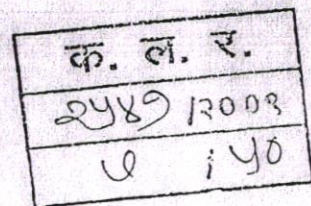 क. ल. र.
२५४१ /२००२
७ / ५०